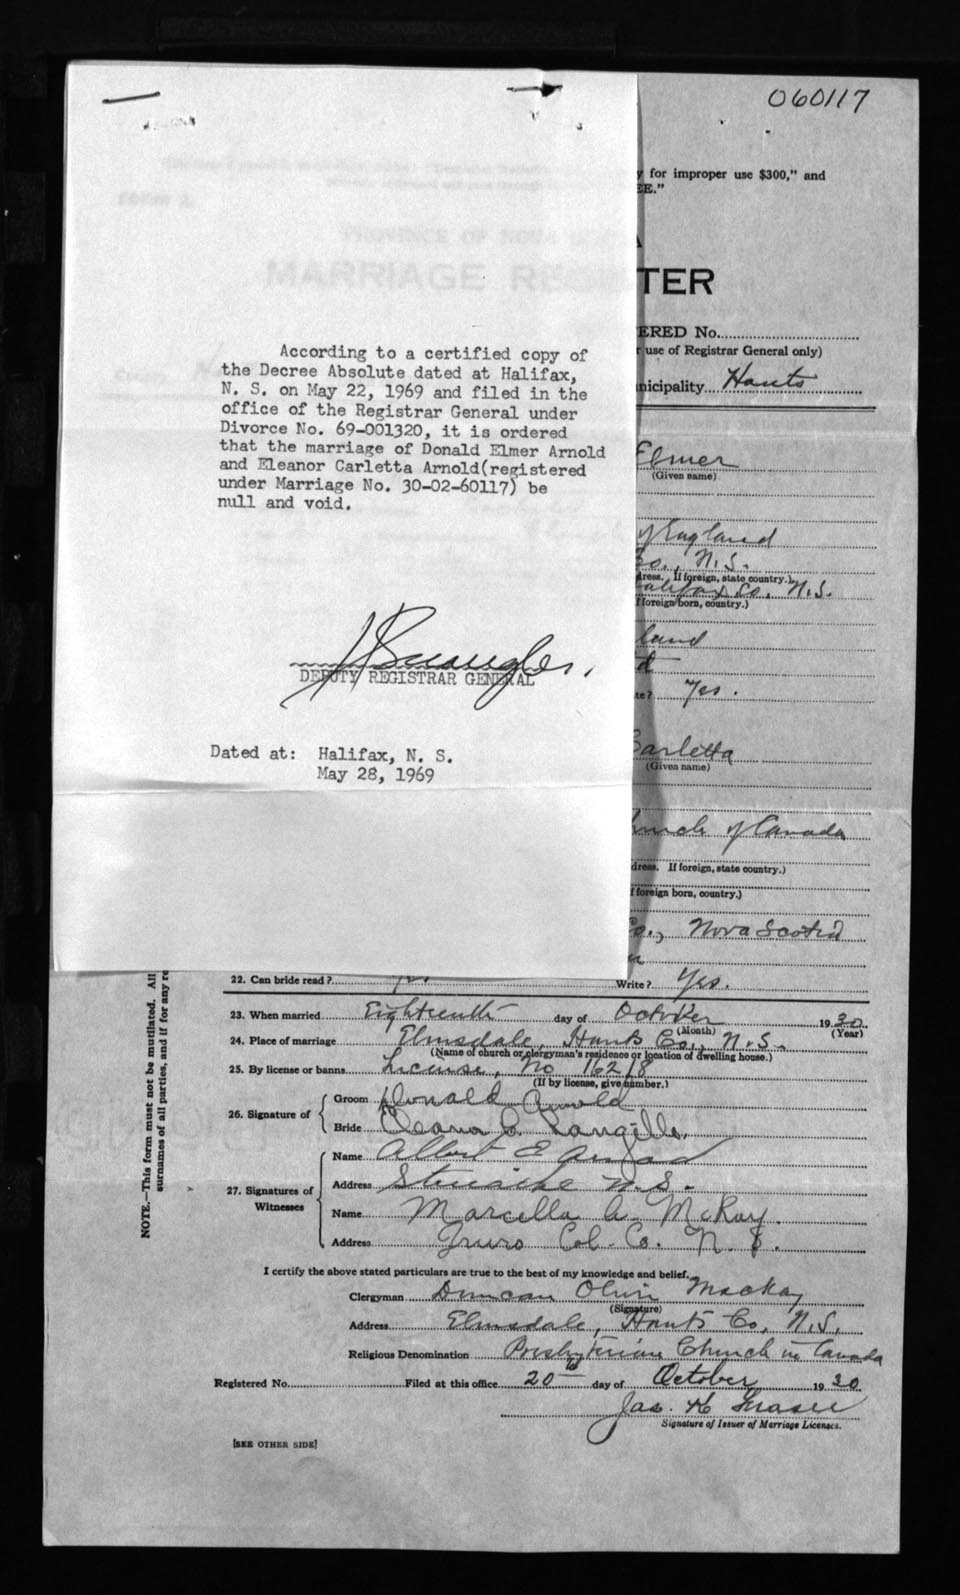 060117
y for improper use $300," and
EE."
A
TER
ERED No.
r use of Registrar General only)
nicipality Hants
According to a certified copy of
the Decree Absolute dated at Halifax,
N. S. on May 22, 1969 and filed in the
office of the Registrar General under
Divorce No. 69-001320, it is ordered
that the marriage of Donald Elmer Arnold
and Eleanor Carletta Arnold(registered
under Marriage No. 30-02-60117) be
null and void.
DEPUTY REGISTRAR GENERAL
Dated at: Halifax, N. S.
May 28, 1969
Elmer
(Given name)
of England
Co., N.S.
dress. If foreign, state country.)
alifax Co. N.S.
f foreign born, country.)
land
d
te? Yes.
Carletta
(Given name)
hurch of Canada
dress. If foreign, state country.)
f foreign born, country.)
Co., Nova Scotia
22. Can bride read? Write? Yes.
23. When married Eighteenth day of October 1930
(Month) (Year)
24. Place of marriage Elmsdale, Hants Co., N.S.
(Name of church or clergyman's residence or location of dwelling house.)
25. By license or banns License, No 16218
(If by license, give number.)
26. Signature of
Groom Donald Arnold
Bride Eleanor C. Langille.
27. Signatures of Witnesses
Name Albert E
Address Stewiacke N.S.
Name Marcella A. McKay.
Address Truro Col. Co. N.S.
I certify the above stated particulars are true to the best of my knowledge and belief.
Clergyman Duncan Oliver Mackay
(Signature)
Address Elmsdale, Hants Co, N.S.
Religious Denomination Presbyterian Church in Canada
Registered No. Filed at this office 20th day of October 1930
Jas. H Fraser
Signature of Issuer of Marriage Licenses.
[SEE OTHER SIDE]
NOTE.—This form must not be mutilated. All
surnames of all parties, and if for any re